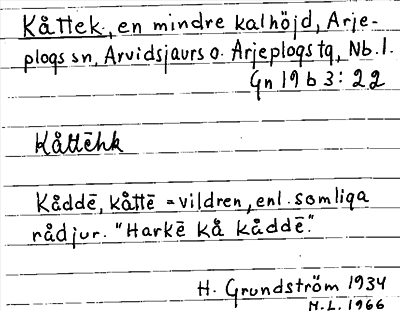 Kåttek, en mindre kalhöjd, Arje-
plogs sn, Arvidsjaurs o. Arjeplogs tg, Nb. l.
Gn 19 b 3: 22
Kåttēhk
Kåddē, kåttē = vildren, enl. somliga
rådjur. "Harkē kå kåddē."
H. Grundström 1934
M.L. 1966